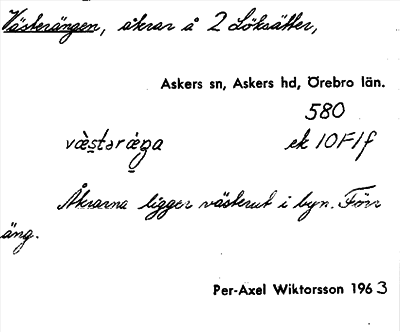 Västerängen, åkrar å 2 Löksätter,
Askers sn, Askers hd, Örebro län.
580
væ̀stəræ̀ŋa ek 10F1f
Åkrarna ligger västerut i byn. Förr
äng.
Per-Axel Wiktorsson 1963